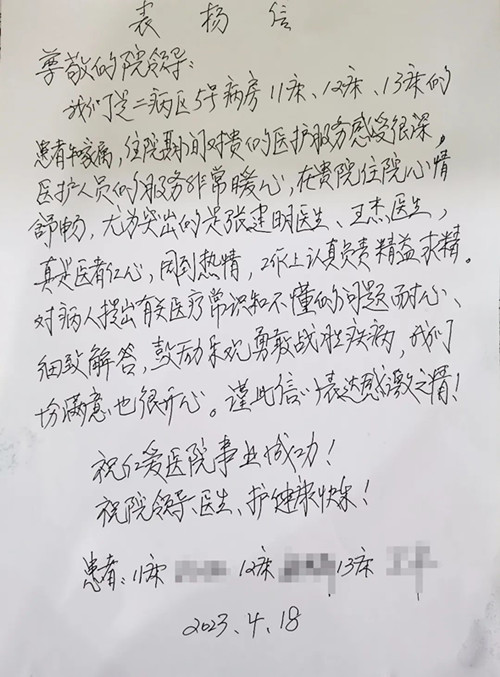 表扬信
尊敬的院领导:
我们是二病区5号病房11床、12床、13床的
患者和家属,住院期间对贵的医护服务感受很深。
医护人员们的服务非常暖心,在贵院住院心情
舒畅,尤为突出的是张建明医生、王杰医生,
真是医者仁心,周到热情,工作上认真负责精益求精。
对病人提出有关医疗常识和不懂的问题耐心、
细致解答,鼓励乐观勇敢战胜疾病,我们
均满意也很开心。谨此信以表达感激之情!
祝仁爱医院事业成功!
祝院领导、医生、护健康快乐!
患者:11床 12床 13床
2023.4.18